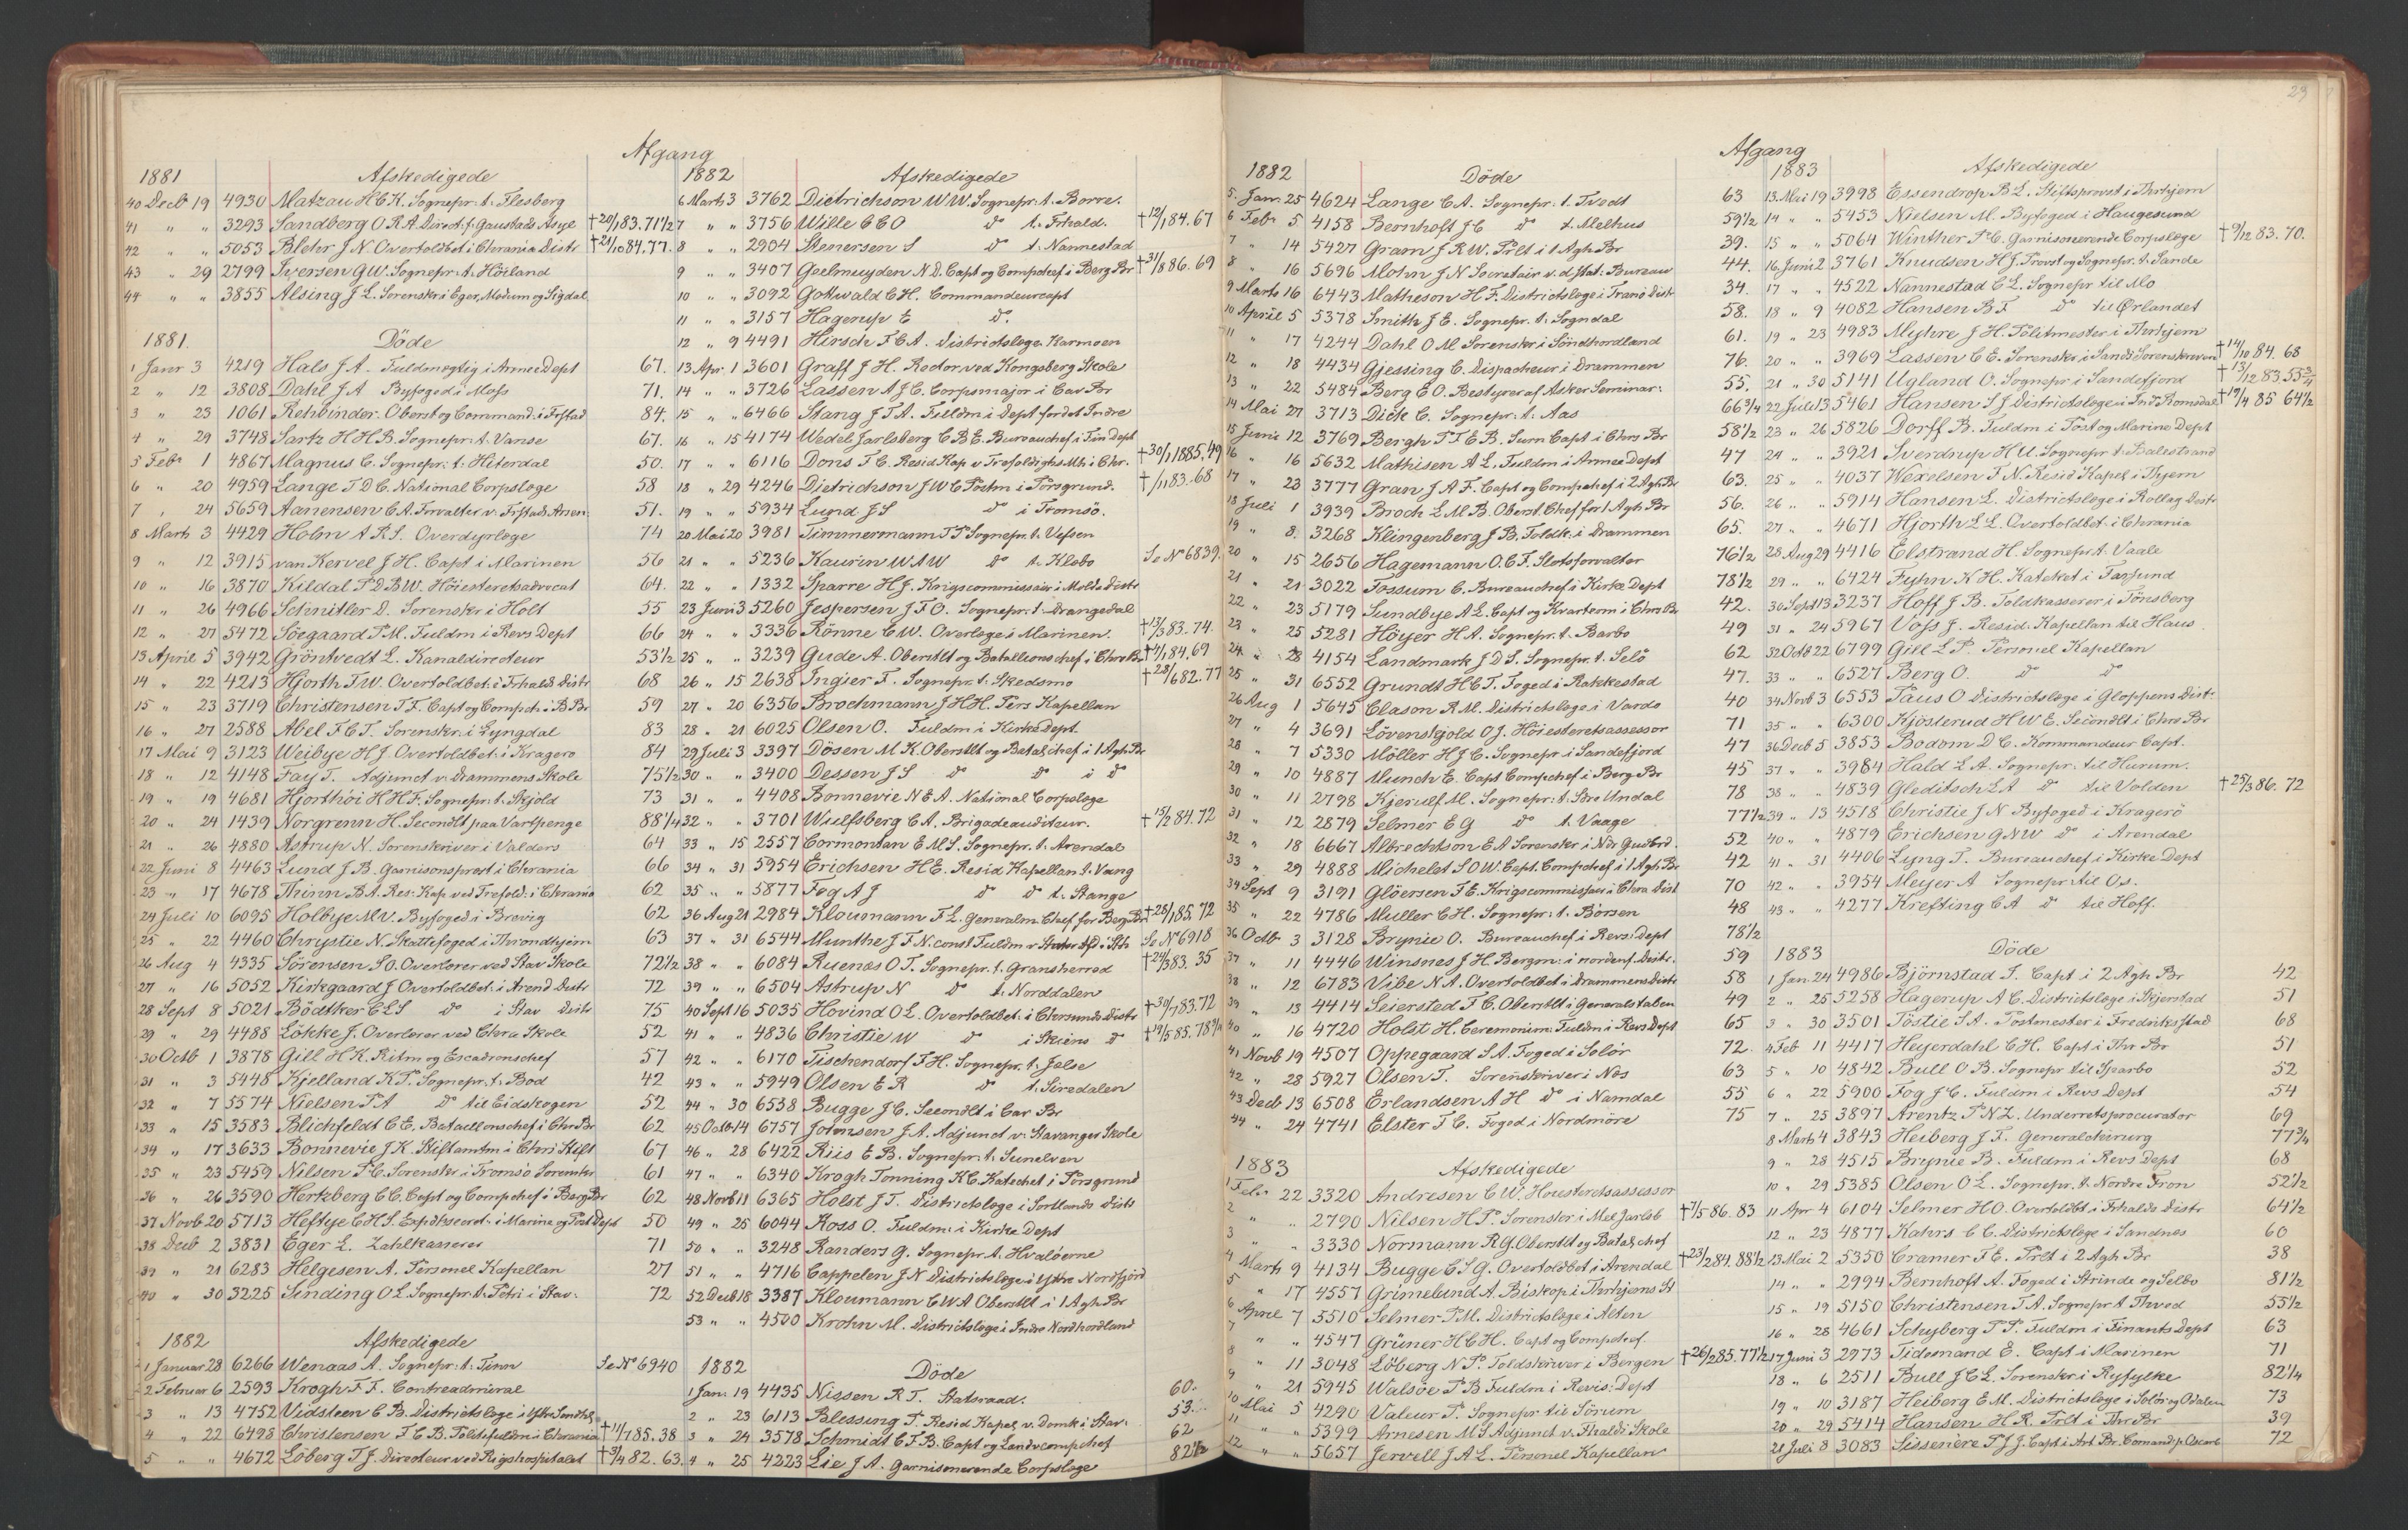 Afgang
1881 Afskedigede
40 Decb 19 4930 Matzau H C K. Sognepr. t. Flesberg
41 " " 3293 Sandberg O R A. Direct. f. Gaustads Asyl †20/1 83. 71 1/2
42 " " 5053 Blehr J N. Overtoldbet. i Chrania Distr †21/10 84. 77.
43 " 29 2799 Iversen G W. Sognepr. t. Höiland
44 " " 3855 Alsing J L. Sorenskr. i Eger, Modum og Sigdal
1881. Döde
1 Janr 3 4219 Hals J A. Fuldmegtig i ArmeeDept 67.
2 " 12 3808 Dahl J A Byfoged i Moss 71.
3 " 23 1061 Rehbinder. Oberst og Command. i Frstad 84.
4 " 29 3748 Sartz H H B. Sognepr. t. Vanse 67.
5 Febr 1 4867 Magnus C. Sognepr. t. Hiterdal 50.
6 " 20 4959 Lange T D C. National Corpslæge 58
7 " 24 5659 Aanensen C A. Forvalter v. Frstads Arsen. 51.
8 Marts 3 4429 Holm A R S. Overdyrlæge 74
9 " 12 3915 van Kervel J H. Capt i Marinen 56
10 " 16 3870 Kildal P D B W. Höiesteretsadvocat 64.
11 " 26 4966 Schnitler D. Sorenskr i Holt 55
12 " 27 5472 Söegaard P M. Fuldm i Revs Dept 66
13 April 5 3942 Gröntvedt L. Kanaldirecteur 53 1/2
14 " 22 4213 Hjorth T W. Overtoldbet. i Frhalds Distr 68
15 " 23 3719 Christensen T F. Capt og Compch. i B Br 59
16 " 27 2588 Abel F C T. Sorenskr. i Lyngdal 83
17 Mai 9 3123 Weibye H J. Overtoldbet. i Kragerø 84
18 " 12 4148 Fay T. Adjunct v. Drammens Skole 75 1/2
19 " 19 4681 Hjorthöi H H F. Sognepr. t. Skjold 73
20 " 24 1439 Norgrenn H. Secondlt paa Vartpenge 88 1/4
21 " 26 4880 Astrup N. Sorenskriver i Valders 64
22 Juni 8 4463 Lund J B. Garnisonsprest i Chrania 66
23 " 17 4678 Thinn B A. Res. Kap. ved Trefold. i Chrania 62
24 Juli 10 6095 Holbye M V. Byfoged i Brevig 62
25 " 22 4460 Chrystie N. Skattefoged i Throndhjem 63
26 Aug 4 4335 Sörensen S O. Overlærer ved Stav Skole 72 1/2
27 " 16 5052 Kirkgaard J Overtoldbet. i Arend Distr 72
28 Sept 8 5021 Bödtker C L S do i Stav Distr 75
29 " 29 4488 Lökke J. Overlærer ved Chra Skole 52
30 Octb 1 3878 Gill H K. Ritm og Escadronschef 57
31 " 3 5448 Kjelland K P. Sognepr. t. Bod 42
32 " 7 5574 Nielsen P A do til Eidskogen 52
33 " 15 3583 Blichfeldt C E. Bataillonschef i Chr Br 62
34 " 17 3633 Bonnevie J K. Stiftamtm i Chri Stift 67
35 " 23 5459 Nilsen P C. Sorenskr. i Tromsö Sorenskr 61
36 " 26 3590 Hertzberg C C. Capt og Compchef i Berg Br 62
37 Novb 20 5713 Heftye C H S. Expd.secret. i Marine og Post Dept 50
38 Decb 2 3831 Eger L. Zahlkasserer 71
39 " 21 6283 Helgesen A. Personel Kapellan 27
40 " 30 3225 Sinding O L. Sognepr. t. Petri i Stav. 72
1882 Afskedigede
1 Januar 28 6266 Wenaas A. Sognepr. t. Tinn Se No 6940
2 Februar 6 2593 Krogh F F. Contreadmiral
3 " 13 4752 Vidsteen C B. Districtslæge i Ytre Söndhl.
4 " 22 6498 Christensen T C B. Politifuldm i Chrania †11/7 85. 38
5 " " 4672 Löberg T J. Directeur ved Rigshospitalet †3/4 82. 63.
1882 Afskedigede
6 Marts 3 3762 Dietrichson W W. Sognepr. t. Borre.
7 " " 3756 Wille C C O do t. Frhald. †12/1 84. 67
8 " " 2904 Stenersen S do t. Nannestad
9 " " 3407 Geelmuyden N D. Capt og Compchef i Berg Br †31/8 86. 69
10 " " 3092 Gottwald C H. Commandeurcapt
11 " " 3157 Hagerup E do.
12 " 9 4491 Hirsch F C A. Districtslæge. Karmöen
13 Apr. 1 3601 Graff J H. Rector ved Kongsberg Skole
14 " " 3726 Lassen A J C. Corpsmajor i Cav Br
15 " " 6466 Stang J T A. Fuldm i Dept for det Indre
16 " 15 4174 Wedel Jarlsberg C B E. Bureauchef i Fin Dept
17 " " 6116 Dons T C. Resid Kap v Trefoldighs Mh i Chr. †30/1 1885. 49
18 " 29 4246 Dietrichson J W C Postm i Porsgrund. †/1 83. 68
19 " " 5934 Lund J S do i Tromsö.
20 Mai 20 3981 Timmermann T P Sognepr. t. Vefsen
21 " " 5236 Kaurin W A W do t. Klæbo Se No 6839.
22 " " 1332 Sparre H J. Krigscommissair i Molde Distr
23 Juni 3 5260 Jespersen J F O. Sognepr. t. Drangedal
24 " " 3336 Rönne C W. Overlæge i Marinen. †13/3 83. 74.
25 " " 3239 Gude A. Oberstlt og Bataillonschef i Chra Br †4/1 84. 69
26 " 15 2638 Ingier F. Sognepr. t. Skedsmo †28/6 82. 77
27 " 20 6356 Brochmann J H H. Pers Kapellan
28 " 21 6025 Olsen O. Fuldm i Kirke Dept.
29 Juli 3 3397 Dösen M K. Oberstlt og Batalchef i 1 Agh Br
30 " " 3400 Dessen J S do do i do
31 " " 4408 Bonnevie N E A. National Corpslæge
32 " " 3701 Wulfsberg C A. Brigadeauditeur. †15/2 84. 72
33 " 15 2557 Cormontan E M S. Sognepr. t. Arendal
34 " 31 5954 Erichsen H E. Resid Kapellan t. Vang
35 " " 5877 Fog A J do do t. Stange
36 Aug 21 2984 Kloumann F L. Generalm. Chef for Berg Br †28/1 85. 72
37 " 31 6544 Munthe J F N. const Fuldm v. Se No 6918
38 " " 6084 Ruenæs O T. Sognepr. t. Gransherred †24/3 83. 35
39 " " 6504 Astrup N do t. Norddalen
40 Sept 16 5035 Hovind O L. Overtoldbet. i Chrsunds Distr †30/7 83. 72
41 " " 4836 Christie W do i Skiens do †19/5 85. 78
42 " " 6170 Tischendorf F H. Sognepr. t. Jelse
43 " " 5949 Olsen E R do t. Siredalen
44 " 30 6538 Bugge J C. Secondlt i Cav Br
45 Octb 14 6757 Johnsen J A. Adjunct v. Stavanger Skole
46 " 28 6422 Riis E B. Sognepr. t. Sunelven
47 " " 6340 Krogh Tonning K C. Katechet i Porsgrund
48 Novb 11 6365 Holst J T. Districtslæge i Sortlands Distr
49 " 25 6044 Koss O. Fuldm. i Kirke Dept
50 " " 3248 Randers G. Sognepr. t. Hvalöerne
51 " " 4716 Cappelen J N Districtslæge i Ytre Nordfjord
52 Decb 18 3387 Kloumann C W A Oberstlt i 1 Agh Br
53 " " 4500 Krohn M. Districtslæge i Indre Nordhordland
1882 Döde
1 Jan. 19 4435 Nissen R T. Statsraad. 60.
2 " 23 6113 Blessing P. Resid Kapel v. Domk i Stav. 53.
3 " 24 3578 Schmidt C F B. Capt og Landvcompchef 62
4 " 25 4223 Lie J A. Garnisonerende Corpslæge 82 1/2
23
Afgang
1882 Döde
5 Jan. 25 4624 Lange C A. Sognepr. t. Tvedt 63
6 Febr 5 4158 Bernhoft J C do t. Melhus 59 1/2
7 " 14 5427 Gram J R W. Prlt i 1 Agh Br 39.
8 " 16 5696 Mohn J N Secretair v. d stat. Bureau 44.
9 Marts 16 6443 Matheson H F. Districtslæge i Tranö Distr 34.
10 April 5 5378 Smith J E. Sognepr. t. Sogndal 58.
11 " 17 4244 Dahl O M Sorenskr i Söndhordland 61.
12 " 18 4434 Gjessing C. Dispacheur i Drammen 76.
13 " 22 5484 Berg E O. Bestyrer af Asker Seminar. 55.
14 Mai 27 3713 Dick C. Sognepr. t. Aas 66 3/4
15 Juni 12 3769 Bergh P T E B. Surn Capt i Chrs Br 58 1/2
16 " 16 5632 Mathisen A L. Fuldm i Armee Dept 47
17 " 23 3777 Gran J A F. Capt og Compchef i 2 Agh Br 63.
18 Juli 1 3939 Broch L M B. Oberst Chef for 1 Agh Br 56.
19 " 8. 3268 Klingenberg J B. Toldk. i Drammen 65.
20 " 15 2656 Hagemann O. C F. Slotsforvalter 76 1/2
21 " 21 3022 Fossum C. Bureauchef i Kirke Dept 78 1/2
22 " 23 5179 Sundbye A L. Capt og Kvarterm i Chra Br 42.
23 " 25 5281 Höyer H A. Sognepr. t. Barbo 49
24 " 28 4154 Landmark J D S. Sognepr. t. Selö 62
25 " 31 6552 Grundt H C T. Foged i Rakkestad 47.
26 Aug 1 5645 Clason R M. Districtslæge i Vardø 40
27 " 4 3691 Lövenskjold O J. Höiesteretsassessor 71
28 " 7 5330 Möller H J C. Sognepr. i Sandefjord 47
29 " 10 4887 Munch E. Capt Compchef i Berg Br 45
30 " 11 2798 Kjerulf M. Sognepr. t. Söre Undal 78
31 " 12 2879 Selmer E G do t. Vaage 77 1/2
32 " 18 6667 Albrechtson E A Sorenskr i Ndr Gudbrd. 52
33 " 29 4888 Michelet S O W. Capt. Compchef i 1 Agh Br 42
34 Sept 9 3191 Glöersen F E. Krigscommissair i Chra Distr 70
35 " 22 4786 Muller C H. Sognepr. t. Börsen 48
36 Octb 3 3128 Brynie O. Bureauchef i Revs. Dept 78 1/2
37 " 11 4446 Winsnes J H. Bergm. i nordenf. Distr. 59
38 " 12 6783 Vibe N A. Overtoldbet i Drammens Distr 58
39 " 13 4414 Seiersted F C. Oberstlt i Generalstaben 49
40 " 16 4720 Holst H. Ceremonim. Fuldm i Revs Dept 65
41 Novb 19 4507 Oppegaard S A. Foged i Solör 72.
42 " 28 5927 Olsen T. Sorenskriver i Næs 63
43 Decb 13 6508 Erlandsen A H do i Namdal 55
44 " 24 4741 Elster T C. Foged i Nordmöre 75
1883 Afskedigede
1 Febr 22 3320 Andresen C W. Höiesteretsassessor
2 " " 2790 Nilsen H P. Sorenskr i Mel Jarlsb †7/5 86. 83
3 " " 3330 Normann R G. Oberstlt og Batalchef
4 Marts 9 4134 Bugge C S G. Overtoldbet i Arendal †23/2 84. 88 1/2
5 " 17 4557 Grimelund A. Biskop i Thrhjems St
6 April 7 5510 Selmer P M. Districtslæge i Alten
7 " " 4547 Grüner H C H. Capt og Compchef
8 " 11 3048 Löberg N P. Toldskriver i Bergen †26/2 85. 77 1/2
9 " 21 5945 Walsöe P B Fuldm i Revis. Dept
10 Mai 5 4290 Valeur P. Sognepr til Sörum
11 " " 5399 Arnesen M S Adjunct v. Frhalds Skole
12 " " 5657 Jervell J A L. Personel Kapellan
1883 Afskedigede
13 Mai 19 3998 Essendrop B L. Stiftsprovst i Thrhjem
14 " " 5453 Nielsen M. Byfoged i Haugesund
15 " " 5064 Winther P C. Garnisonerende Corpslæge †9/12 83. 70.
16 Juni 2 3761 Knudsen H J. Provst og Sognepr. t. Sande
17 " " 4522 Nannestad C L. Sognepr til Mo
18 " 9 4082 Hansen B F do til Ørlandet
19 " 23 4983 Myhre J H. Politmester i Thrhjem
20 " " 3969 Lassen C E. Sorenskr. i Sands Sorenskriveri †14/10 84. 68
21 " 30 5141 Ugland O. Sognepr i Sandefjord †13/12 83. 55 3/4
22 Juli 13 5461 Hansen S J Districtslæge i Ind Romsdal †19/4 85 64 1/2
23 " 26 5826 Dorff B. Fuldm i Post og Marine Dept
24 " " 3921 Sverdrup H U. Sognepr. t. Balestrand
25 " " 4037 Wexelsen F N. Resid Kapel i Thjem
26 " " 5914 Hansen L. Districtslæge i Rollag Distr
27 " " 4671 Hjorth L L. Overtoldbet. i Chrania
28 Aug 29 4416 Elstrand H. Sognepr. t. Vaale
29 " " 6424 Fyhn K H. Kateket i Farsund
30 Sept 13 3237 Hoff J B. Toldkasserer i Tönsberg
31 " 24 5967 Voss J. Resid. Kapellan til Haus
32 Octb 22 6799 Gill L P. Personel Kapellan
33 " " 6527 Berg O. do do
34 Novb 3 6553 Paus O Districtslæge i Gloppens Distr
35 " " 6300 Kjösterud H W E. Secondlt i Chra Br
36 Decb 5 3853 Bodom D C. Kommandeur Capt.
37 " " 3984 Hald L A. Sognepr. til Hurum.
38 " " 4839 Gleditsch L A do til Volden †25/3 86. 72
39 " 13 4518 Christie J N Byfoged i Kragerö
40 " " 4879 Erichsen G N W do i Arendal
41 " 31 4406 Lyng T. Bureauchef i Kirke Dept
42 " " 3954 Meyer A Sognepr. til Os.
43 " " 4277 Krefting C A do til Hoff.
1883 Döde
1 Jan. 24 4986 Björnstad P. Capt i 2 Agh Br 42
2 " 25 5258 Hagerup A C. Districtslæge i Skjerstad 51
3 " 30 3501 Töstie S A. Postmester i Fredriksstad 68
4 Feb 11 4417 Heyerdahl C H. Capt i Thr Br 51
5 " 10 4842 Bull O B. Sognepr til Sparbo 52
6 " 22 5900 Fog J C. Fuldm i Revs Dept 54
7 " 25 3897 Arentz P N L. Underretsprocurator 69
8 Marts 4 3843 Heiberg J F. Generalchirurg 77 3/4
9 " 28 4515 Brynie B. Fuldm i Revs Dept 68
10 " 29 5385 Olsen O L. Sognepr. t. Nordre Fron 52 1/2
11 Apr 4 6104 Selmer H O. Overtoldbt. i Frhalds Distr 64 1/2
12 " 23 4877 Kahrs C C. Districtslæge i Sandnes 60
13 Mai 2 5350 Cramer F E. Prlt i 2 Agh Br 38
14 " " 2994 Bernhoft A. Foged i Strinde og Selbo 81 1/2
15 " 19 5150 Christensen T A. Sognepr t. Thved 55 1/2
16 " 28 4661 Schyberg T P. Fuldm i Finants Dept 63
17 Juni 3 2973 Tidemand E. Capt i Marinen 71
18 " 6 2511 Bull J C L. Sorenskr i Ryfylke 82 1/4
19 " 10 3187 Heiberg E M. Districtslæge i Solör og Odalen 73
20 " 29 5414 Hansen H R. Prlt i Thr Br 39
21 Juli 8 3083 Sissenère P J J. Capt i Art Br. Comand p. Oscarb 72